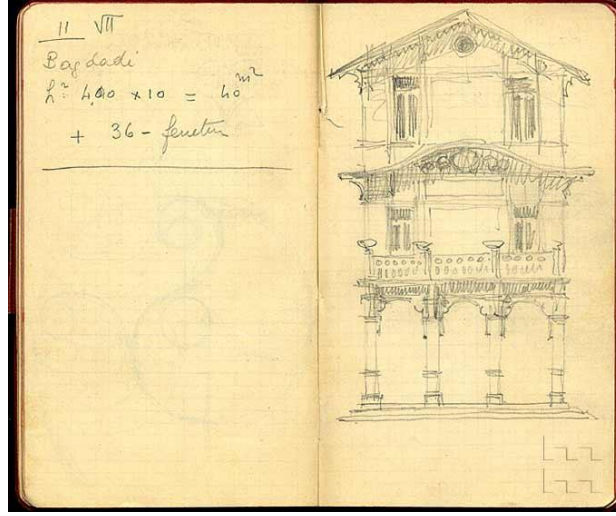 11 VII
Bagdadi
h = 4,00 x 10 = 40 m²
+ 36 - fenetre